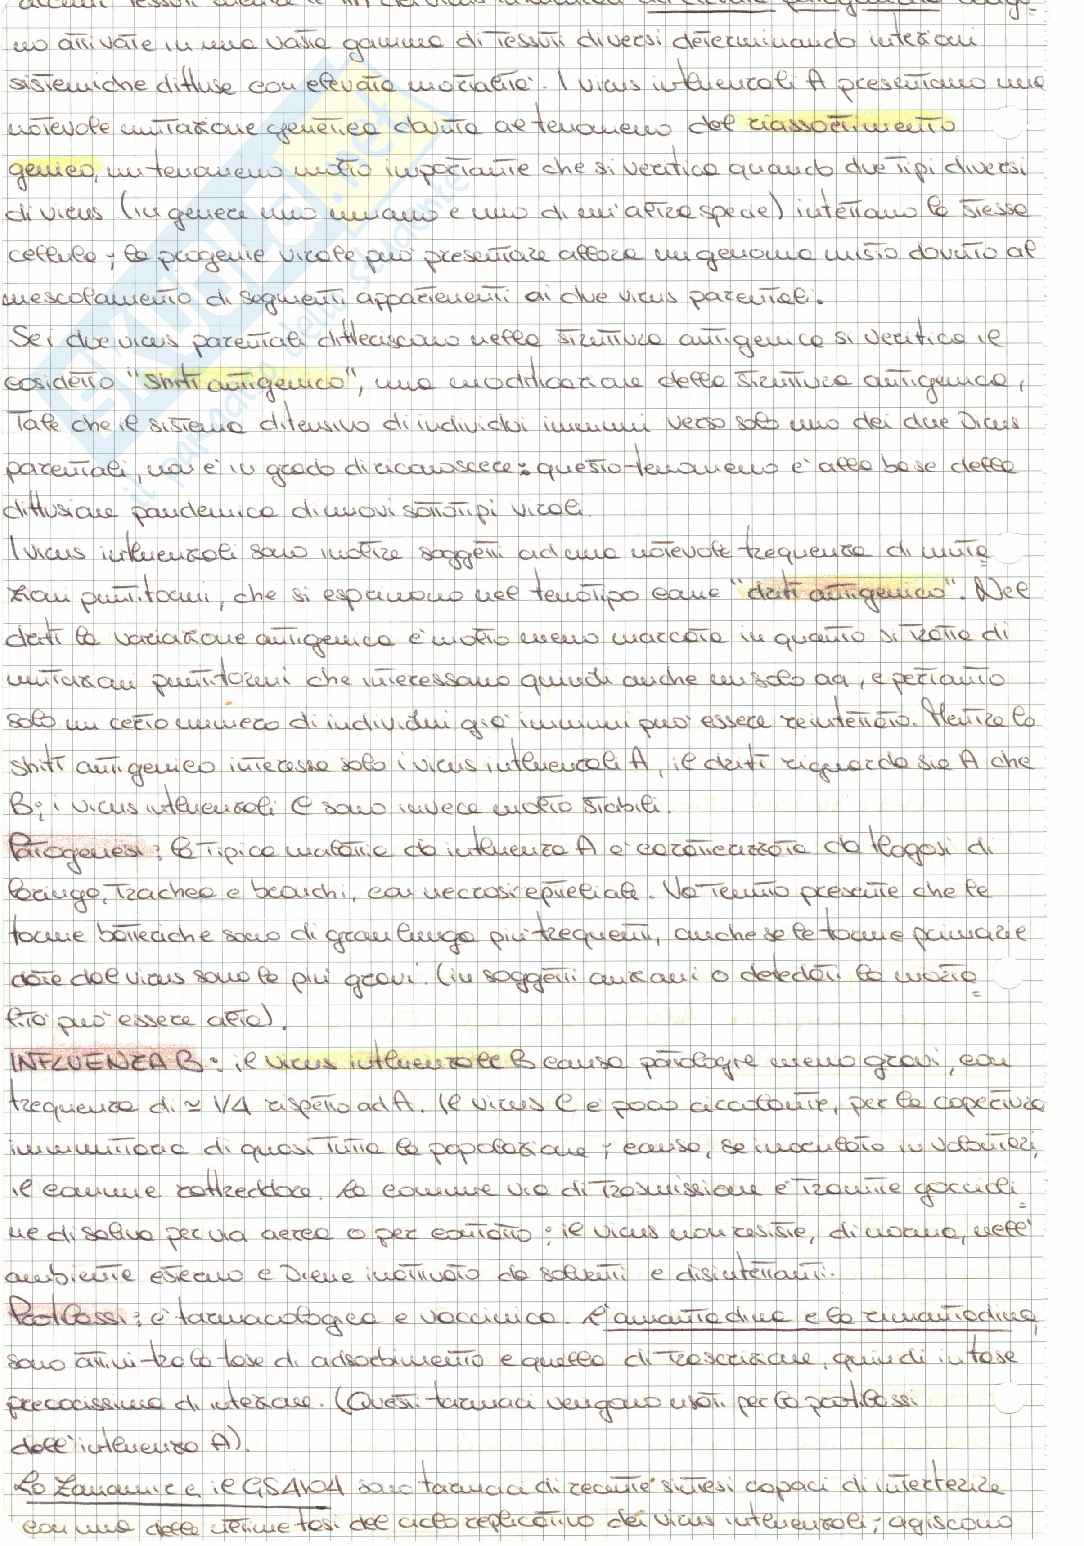 no attivate in una vasta gamma di tessuti diversi determinando infezioni
sistemiche diffuse con elevata mortalità. I virus influenzali A presentano una
notevole mutazione genetica dovuta al fenomeno del riassortimento
genico, un fenomeno molto importante che si verifica quando due tipi diversi
di virus (in genere uno umano e uno di un'altra specie) infettano la stessa
cellula; la progenie virale può presentare allora un genoma misto dovuto al
mescolamento di segmenti appartenenti ai due virus parentali.
Se i due virus parentali differiscono nella struttura antigenica si verifica il
cosidetto "shift antigenico", una modificazione della struttura antigenica,
tale che il sistema difensivo di individui immuni verso solo uno dei due virus
parentali, non è in grado di riconoscere: questo fenomeno è alla base della
diffusione pandemica di nuovi sottotipi virali.
I virus influenzali sono inoltre soggetti ad una notevole frequenza di muta
zioni puntiformi, che si espandono nel fenotipo come "drift antigenico". Nel
drift la variazione antigenica è molto meno marcata in quanto si tratta di
mutazioni puntiformi che interessano quindi anche un solo aa, e pertanto
solo un certo numero di individui già immuni può essere reinfettato. Mentre lo
shift antigenico interessa solo i virus influenzali A, il drift riguarda sia A che
B; i virus influenzali C sono invece molto stabili.
Patogenesi: la tipica malattia da influenza A è caratterizzata da flogosi di
laringe, trachea e bronchi, con necrosi epiteliale. Va tenuto presente che le
forme batteriche sono di gran lunga più frequenti, anche se le forme primarie
date dal virus sono le più gravi. (in soggetti anziani o defedati la morta
lità può essere alta).
INFLUENZA B: il virus influenzale B causa patologie meno gravi, con
frequenza di ≃ 1/4 rispetto ad A. Il virus C è poco circolante, per la copertura
immunitaria di quasi tutta la popolazione; causa, se inoculato in volontari,
il comune raffreddore. La comune via di trasmissione è tramite goccioli
ne di saliva per via aerea o per contatto; il virus non resiste, di norma, nell'
ambiente esterno e viene inattivato da solventi e disinfettanti.
Profilassi: è farmacologica e vaccinica. L'amantadina e la rimantadina,
sono attivi tra la fase di adsorbimento e quella di trascrizione, quindi in fase
precocissima di infezione. (Questi farmaci vengono usati per la profilassi
dell'influenza A).
Lo Zanamir e il GS4104 sono farmaci di recente sintesi capaci di interferire
con una delle ultime fasi del ciclo replicativo dei virus influenzali; agiscono
SKUOLA.net